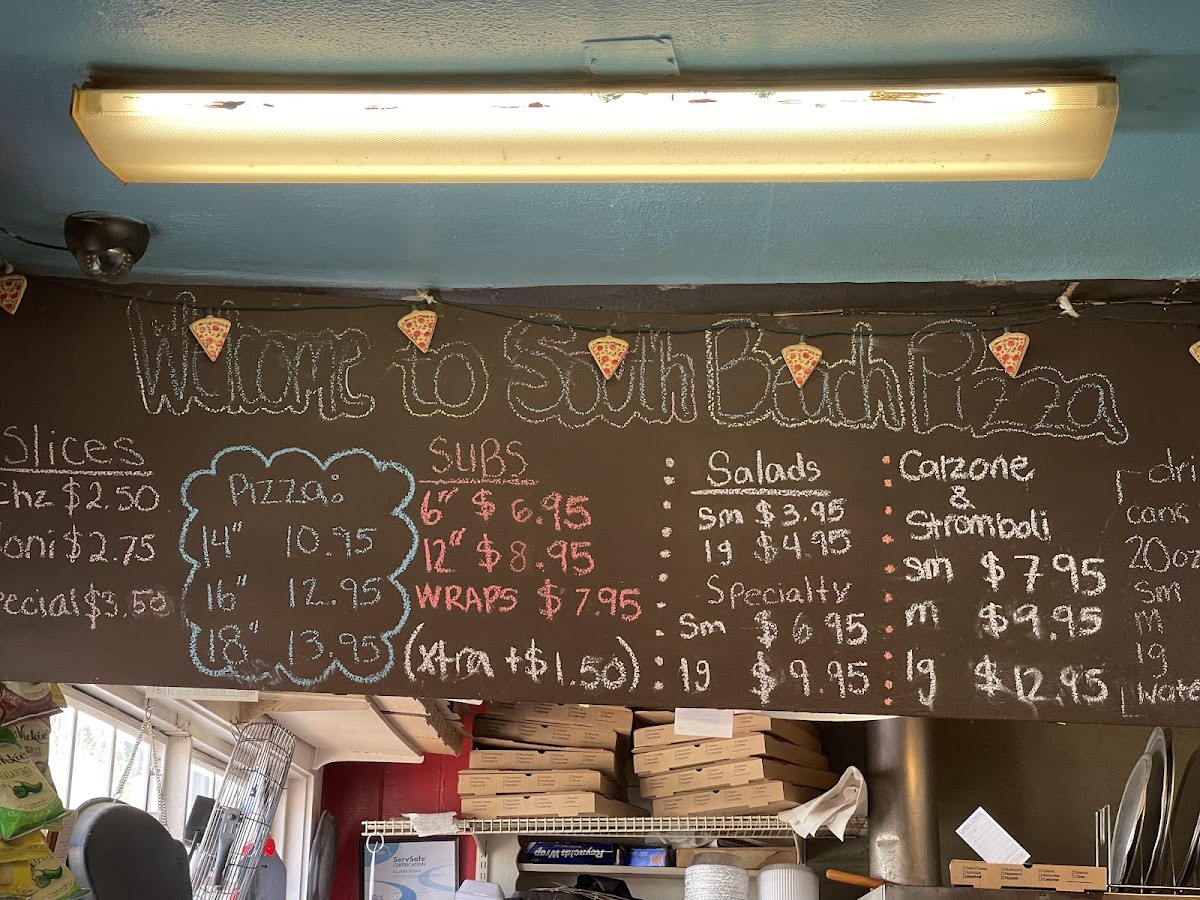 Welcome to South Beach Pizza
Slices
Chz $2.50
oni $2.75
pecial $3.50
Pizza:
14" 10.95
16" 12.95
18" 13.95
SUBS
6" $6.95
12" $8.95
WRAPS $7.95
(xtra +$1.50)
Salads
sm $3.95
lg $4.95
Specialty
sm $6.95
lg $9.95
Calzone
&
Stromboli
sm $7.95
m $9.95
lg $12.95
dri
cans
20oz
sm
m
lg
wate
ServSafe
CERTIFICATION
Reynolds Wrap